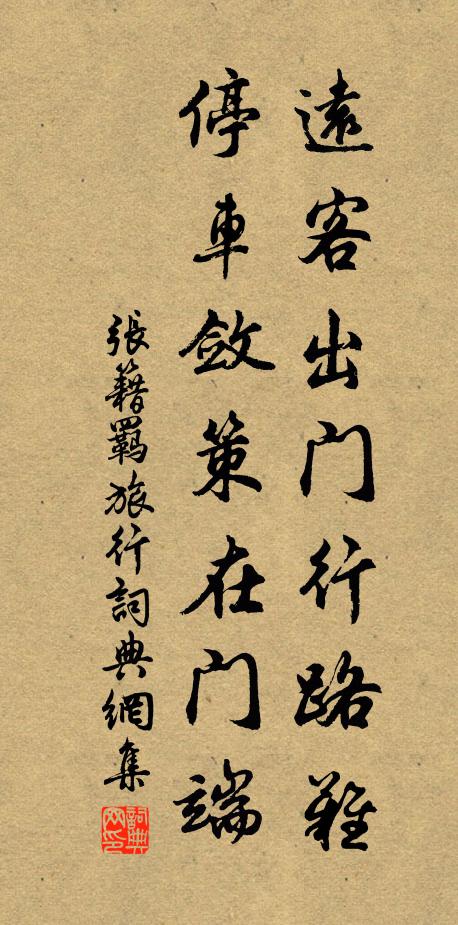 遠客出門行路難
停車斂策在門端
張籍羈旅行詞典網集
詞典網印